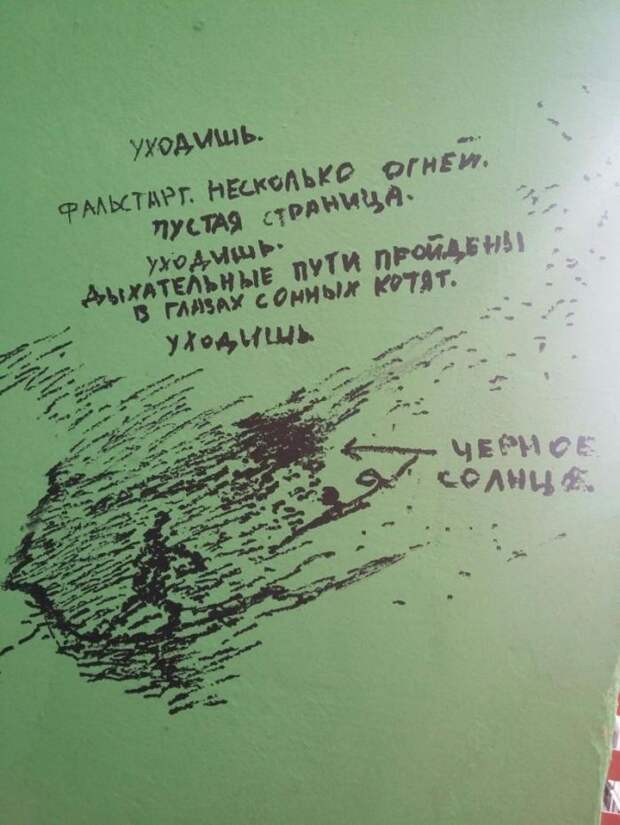 УХОДИШЬ.
ФАЛЬСТАРТ. НЕСКОЛЬКО ОГНЕЙ.
ПУСТАЯ СТРАНИЦА.
УХОДИШЬ.
ДЫХАТЕЛЬНЫЕ ПУТИ ПРОЙДЕНЫ
В ГЛАЗАХ СОННЫХ КОТЯТ.
УХОДИШЬ
ЧЕРНОЕ
СОЛНЦЕ.